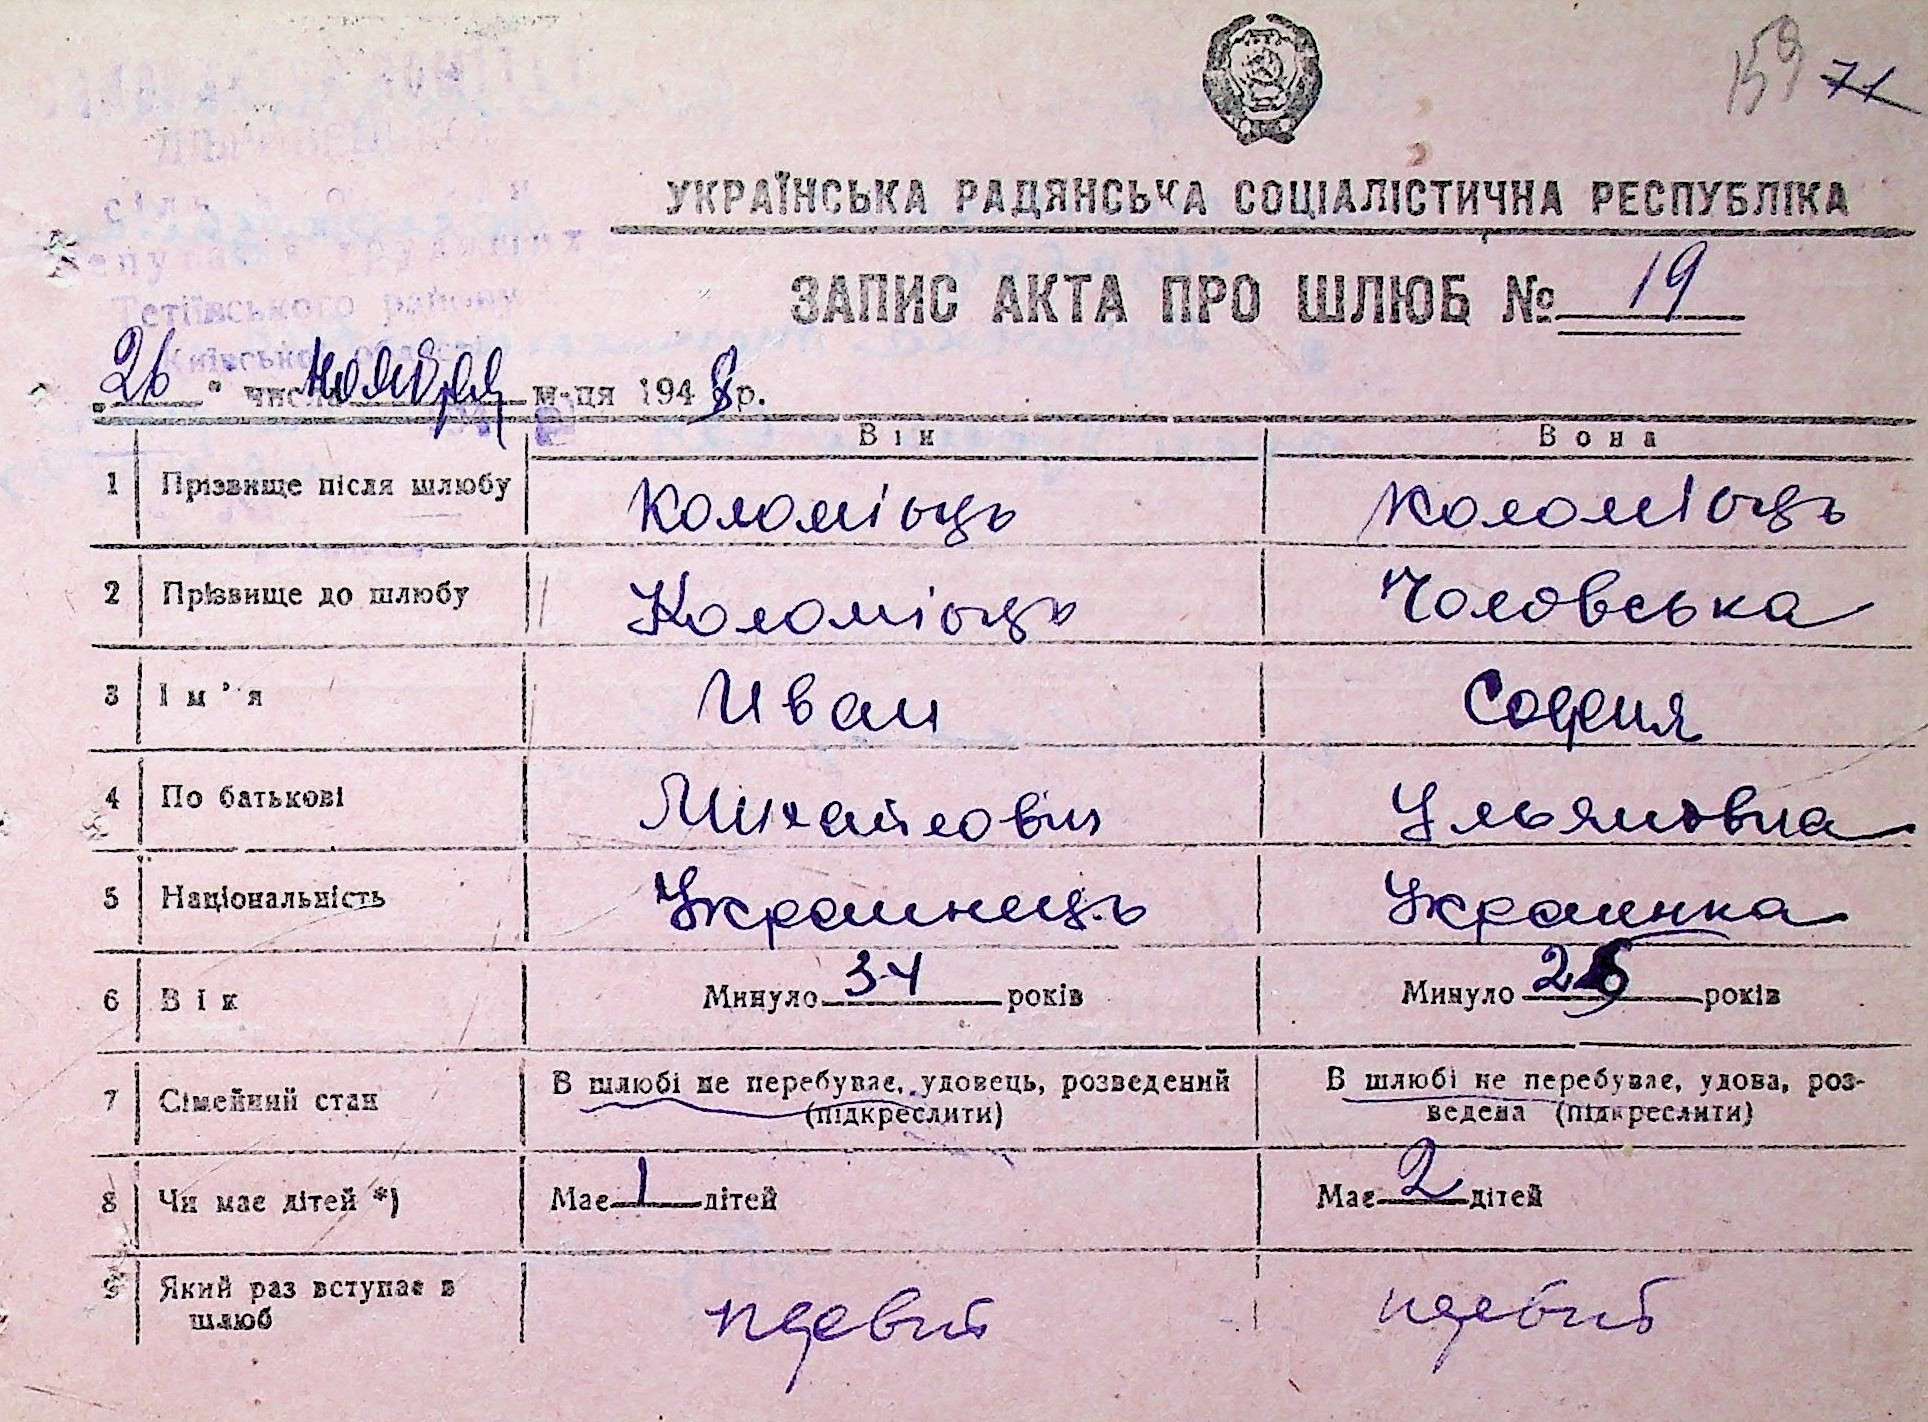 159 71
УКРАЇНСЬКА РАДЯНСЬКА СОЦІАЛІСТИЧНА РЕСПУБЛІКА
Тетіївського району
Київської області
ЗАПИС АКТА ПРО ШЛЮБ № 19
„26" числа ноября м-ця 1948 р.
Він Вона
1 Прізвище після шлюбу Коломієць Коломієць
2 Прізвище до шлюбу Коломієць Чоловська
3 Ім'я Иван София
4 По батькові Михайлович Ульяновна
5 Національність Украинець Украинка
6 Вік Минуло 34 років Минуло років
7 Сімейний стан В шлюбі не перебуває, удовець, розведений (підкреслити) В шлюбі не перебуває, удова, роз-
ведена (підкреслити)
8 Чи має дітей *) Має 1 дітей Має 2 дітей
9 Який раз вступає в шлюб первий первий